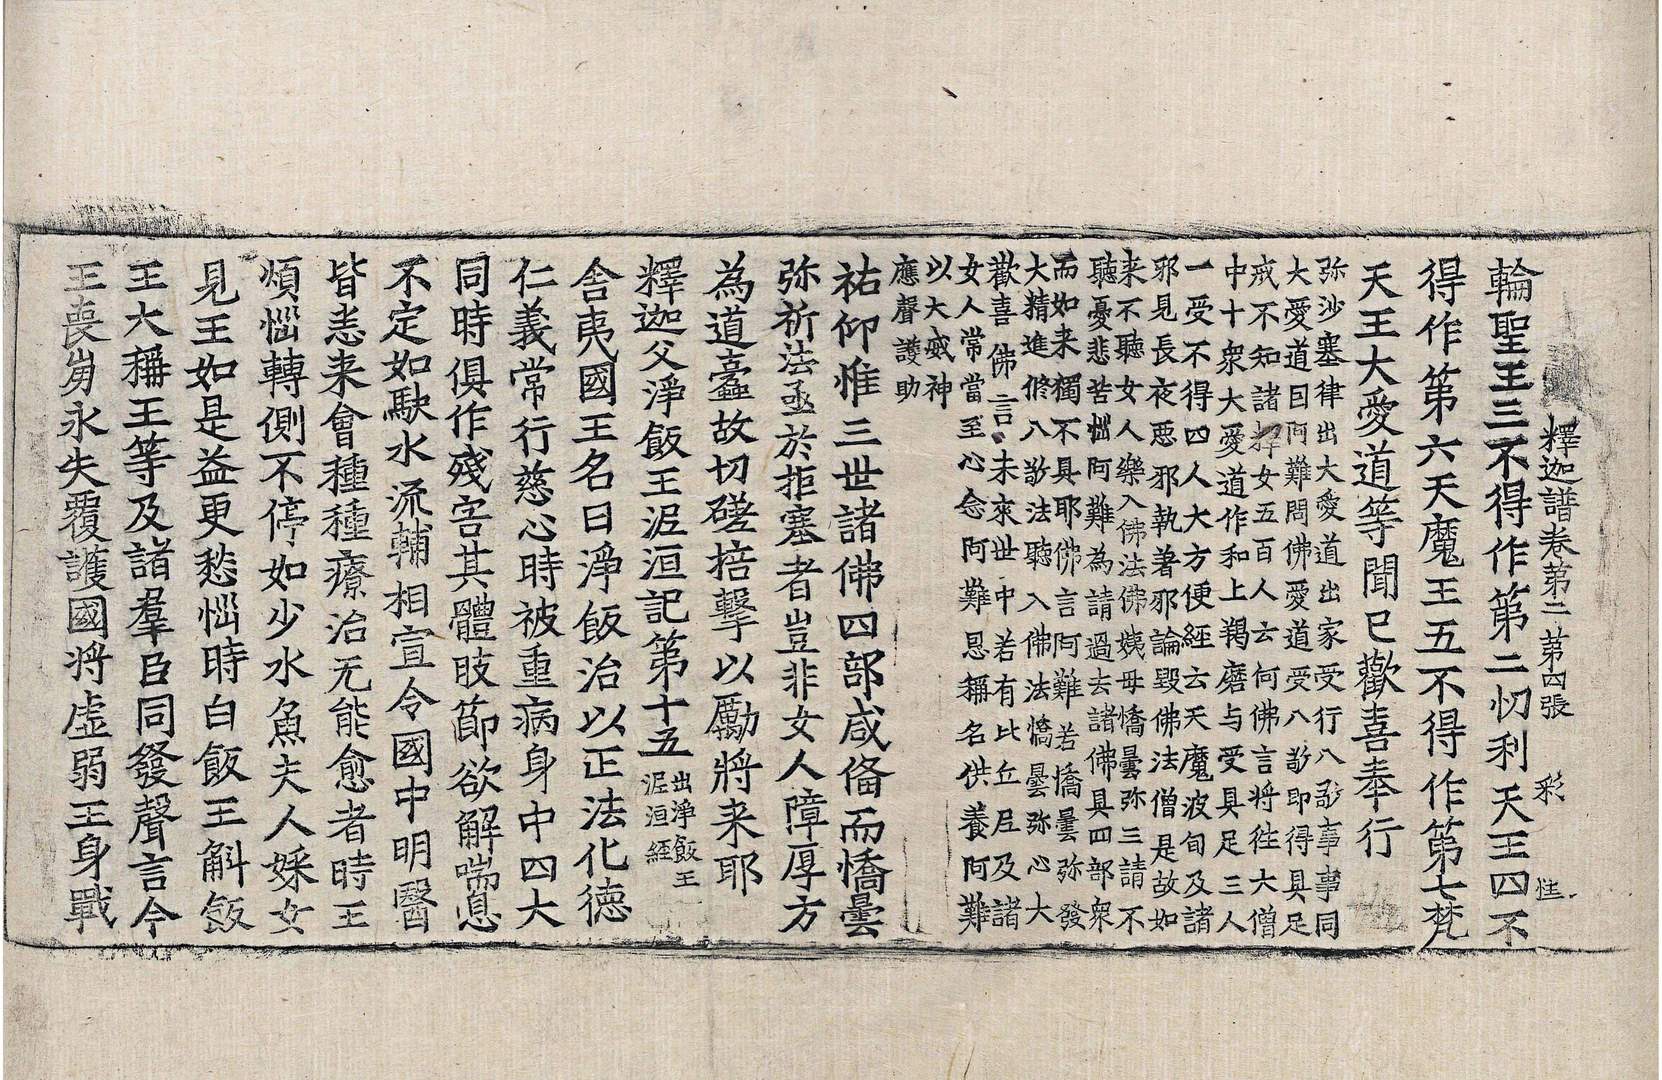 釋迦譜卷苐二 苐四張 彩
輪聖王三不得作苐二忉利天王四不
得作苐六天魔王五不得作苐七梵
天王大愛道等聞已歡喜奉行
弥沙塞律出大愛道出家受行八敬事事同
大愛道因阿難問佛愛道受八敬即得具足
戒不知諸釋女五百人云何佛言将往大僧
中十衆大愛道作和上羯磨与受具足三人
一受不得四人大方便經云天魔波旬及諸
邪見長夜惡邪執著邪論毀佛法僧是故如
来不聽女人樂入佛法佛姨母憍曇弥三請不
聽憂悲苦惱阿難為請過去諸佛具四部衆
而如来獨不具耶佛言阿難若憍曇弥發
大精進修八敬法聽入佛法憍曇弥心大
歡喜佛言未來世中若有比丘尼及諸
女人常當至心念阿難恩稱名供養阿難
以大威神
應聲護助
祐仰惟三世諸佛四部咸俻而憍曇
弥祈法亟於拒塞者豈非女人障厚方
為道蠹故切磋掊擊以勵將来耶
釋迦父淨飯王泥洹記第十五 出淨飯王泥洹經
舍夷國王名曰淨飯治以正法化德
仁義常行慈心時被重病身中四大
同時俱作殘害其體肢節欲解喘息
不定如駃水流輔相宣令國中明醫
皆悉来會種種療治无能愈者時王
煩惱轉側不停如少水魚夫人婇女
見王如是益更愁惱時白飯王斛飯
王大稱王等及諸羣臣同發聲言今
王喪崩永失覆護國將虛弱王身戰